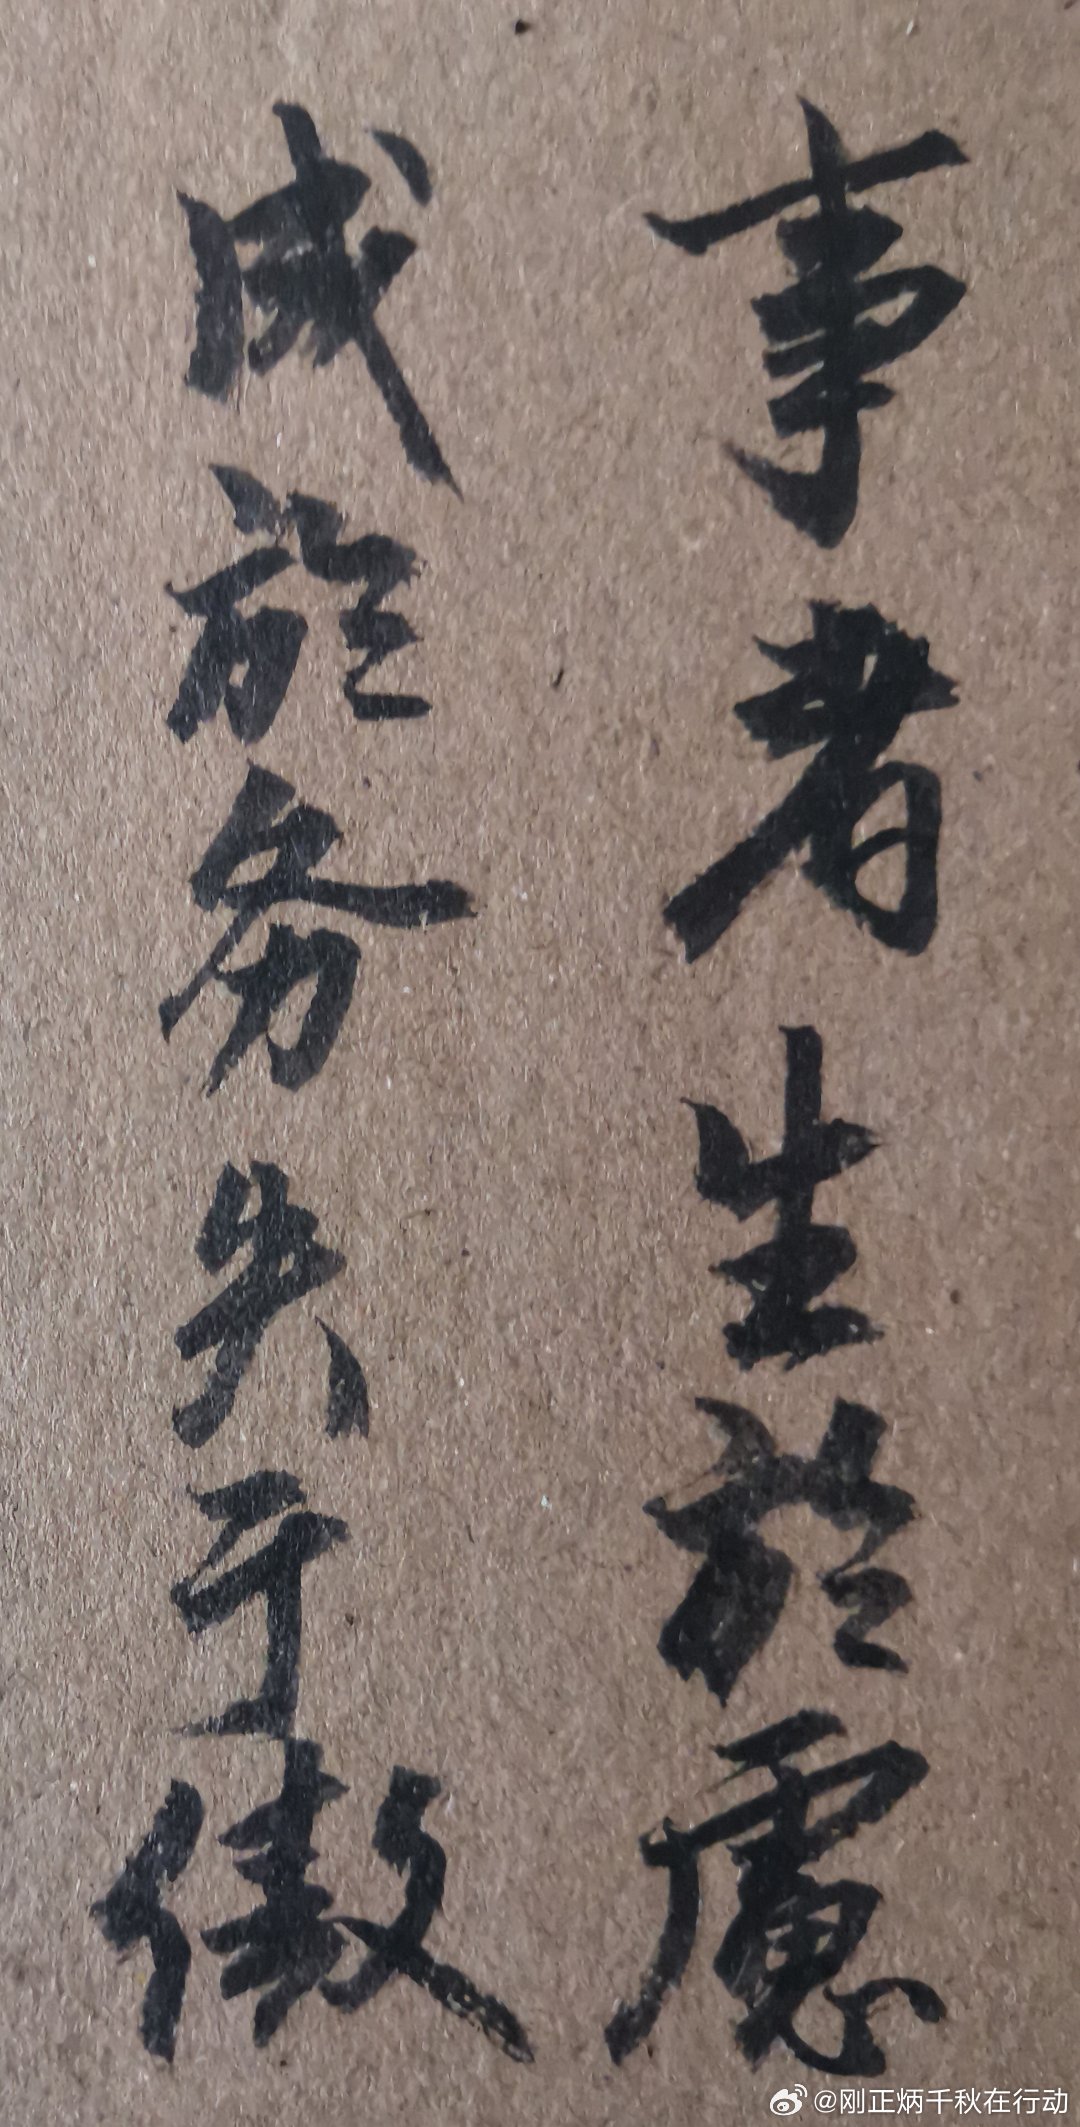 事者生於慮
成於务失于傲
@刚正炳千秋在行动